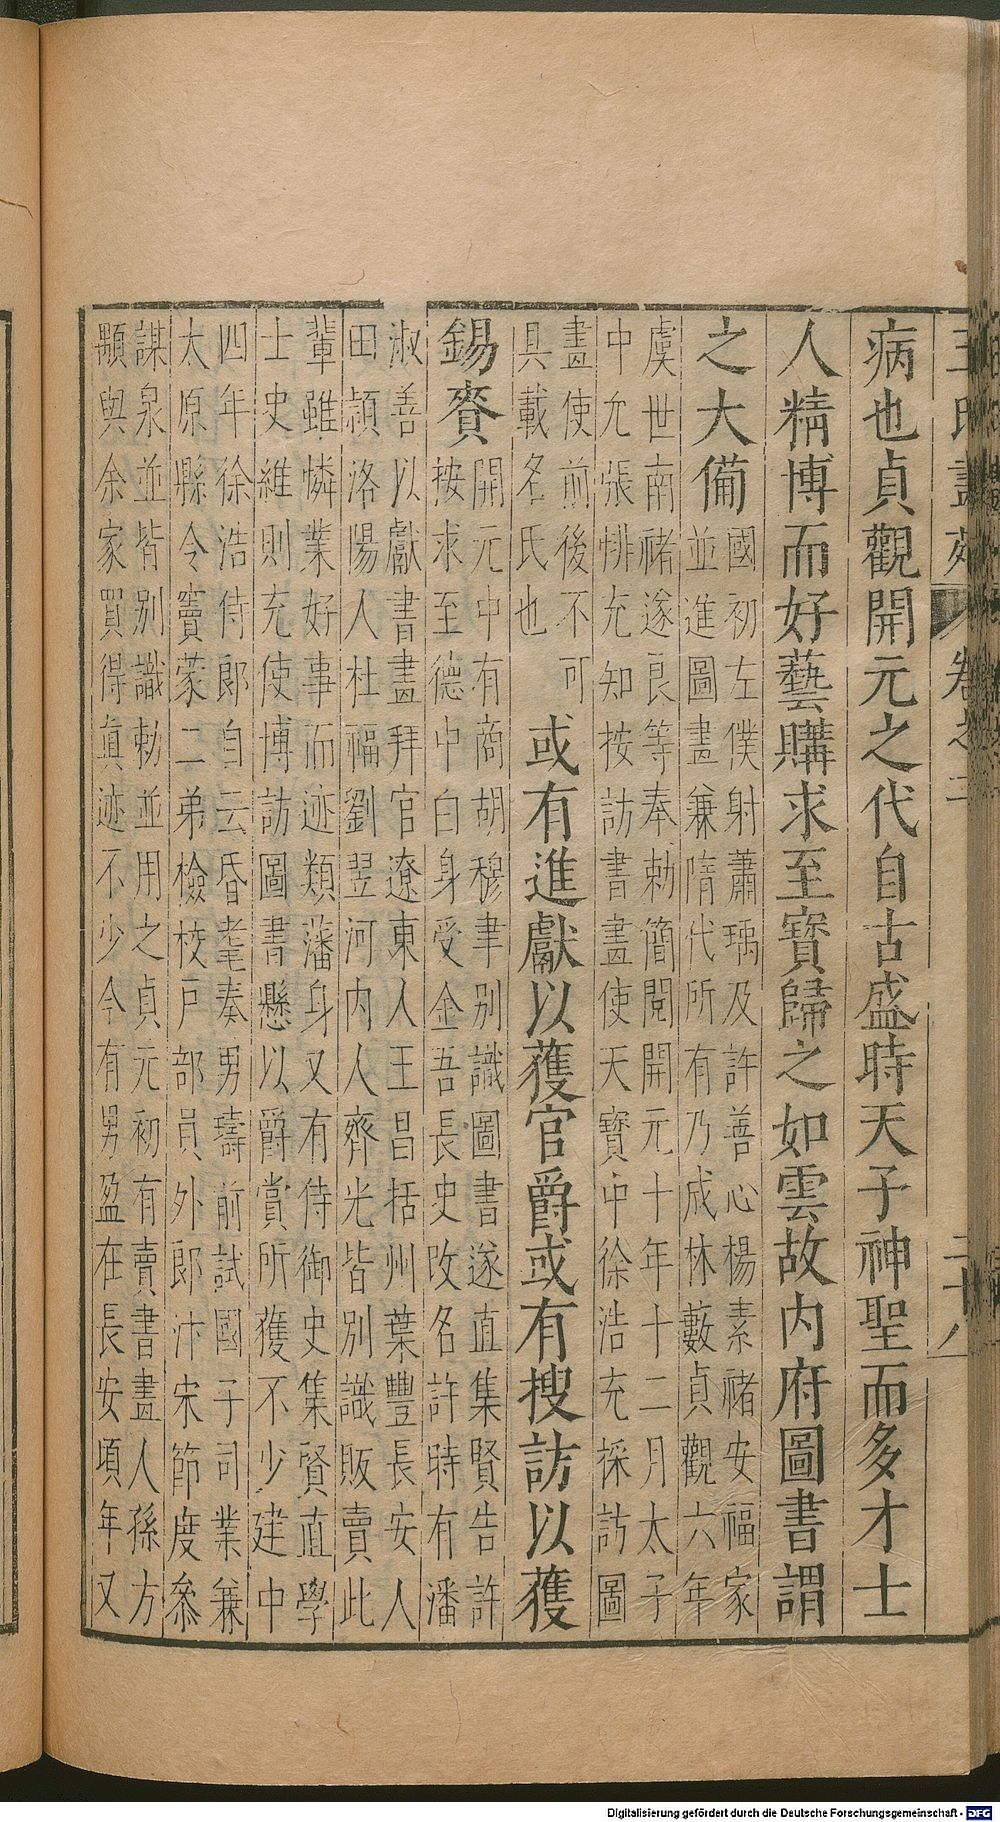 王氏畫苑 卷之二 二十八
病也貞觀開元之代自古盛時天子神聖而多才士
人精博而好藝購求至寶歸之如雲故内府圖書謂
之大備
國初左僕射蕭瑀及許善心楊素禇安福家
並進圖畫兼隋代所有乃成林藪貞觀六年
虞世南禇遂良等奉勑簡閱開元十年十二月太子
中允張悱充知按訪書畫使天寶中徐浩充採訪圖
畫使前後不可
具載名氏也
或有進獻以獲官爵或有搜訪以獲
錫賚
開元中有商胡穆聿别識圖書遂直集賢告訐
按求至德中白身受金吾長史改名許時有潘
淑善以獻書畫拜官遼東人王昌括州葉豐長安人
田頴洛陽人杜福劉翌河内人齊光皆别識販賣此
輩雖憐業好事而迹類藩身又有侍御史集賢直學
士史維則充使博訪圖書懸以爵賞所獲不少建中
四年徐浩侍郎自云昏耄奏男璹前試國子司業兼
太原縣令竇蒙二弟檢校戶部員外郎汴宋節度叅
謀泉並皆别識勑並用之貞元初有賣書畫人孫方
顒與余家買得眞迹不少今有男盈在長安頃年又
Digitalisierung gefördert durch die Deutsche Forschungsgemeinschaft - DFG